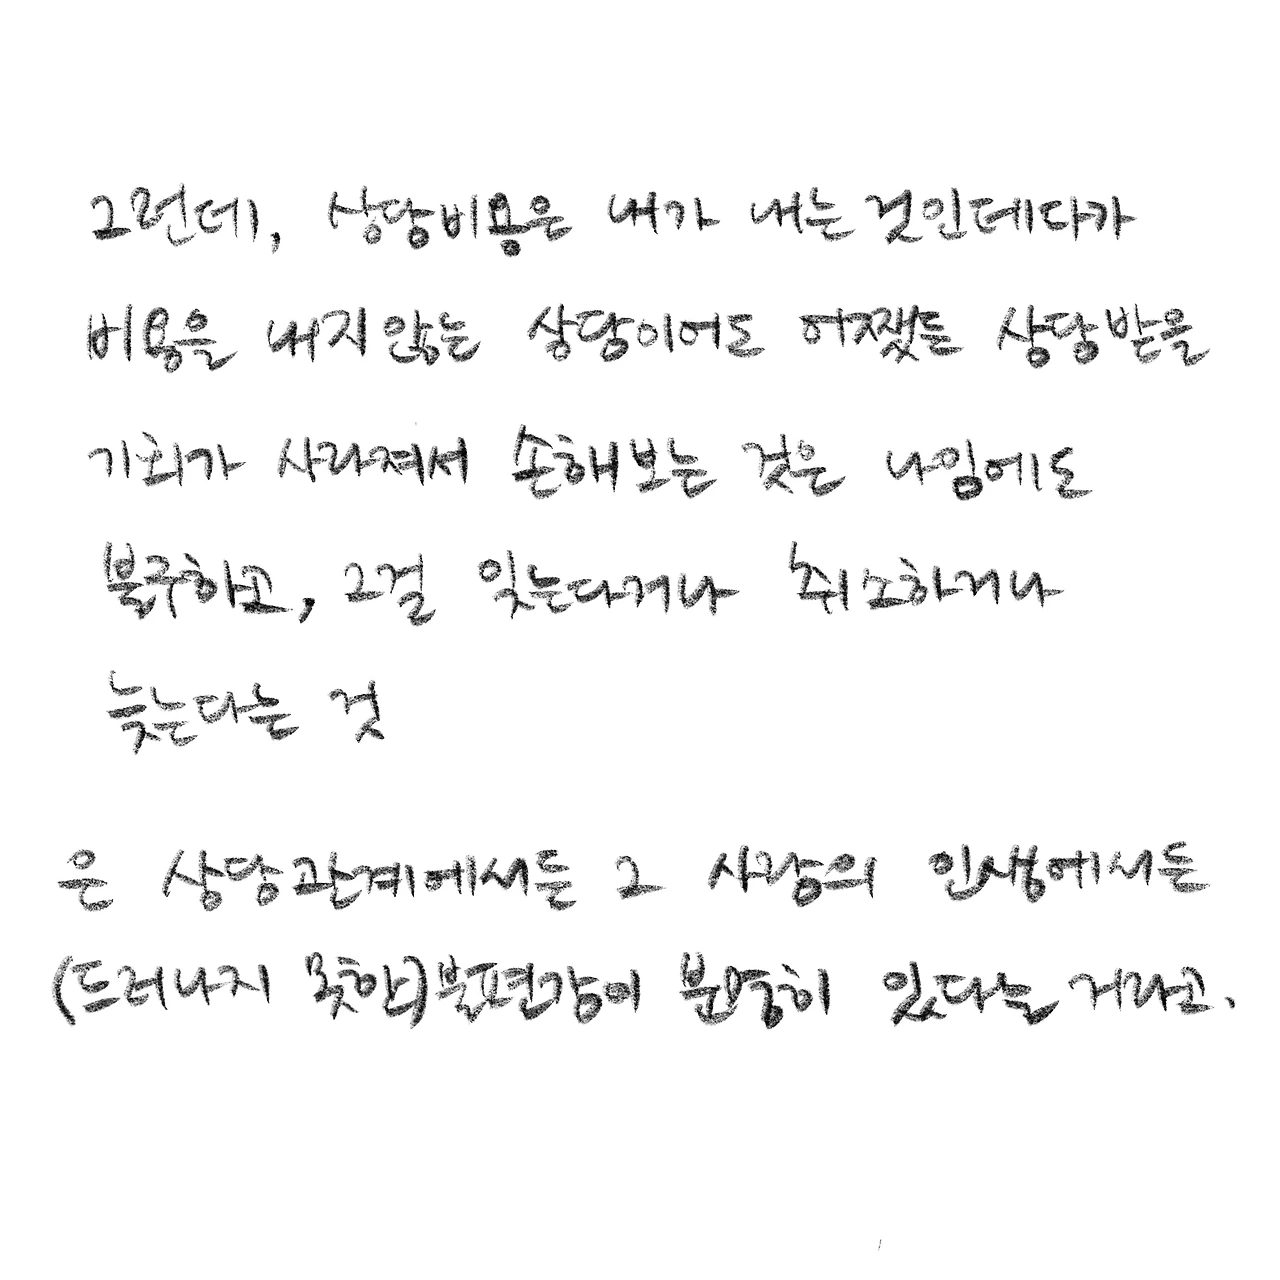 그런데, 상담비용은 내가 내는 것인데다가
비용을 내지 않는 상담이어도 어쨌든 상담받을
기회가 사라져서 손해보는 것은 나임에도
불구하고, 그걸 잊는다거나 취소하거나
늦는다는 것
은 상담관계에서든 그 사람의 인생에서든
(드러나지 못한)불편감이 분명히 있다는 거라고.